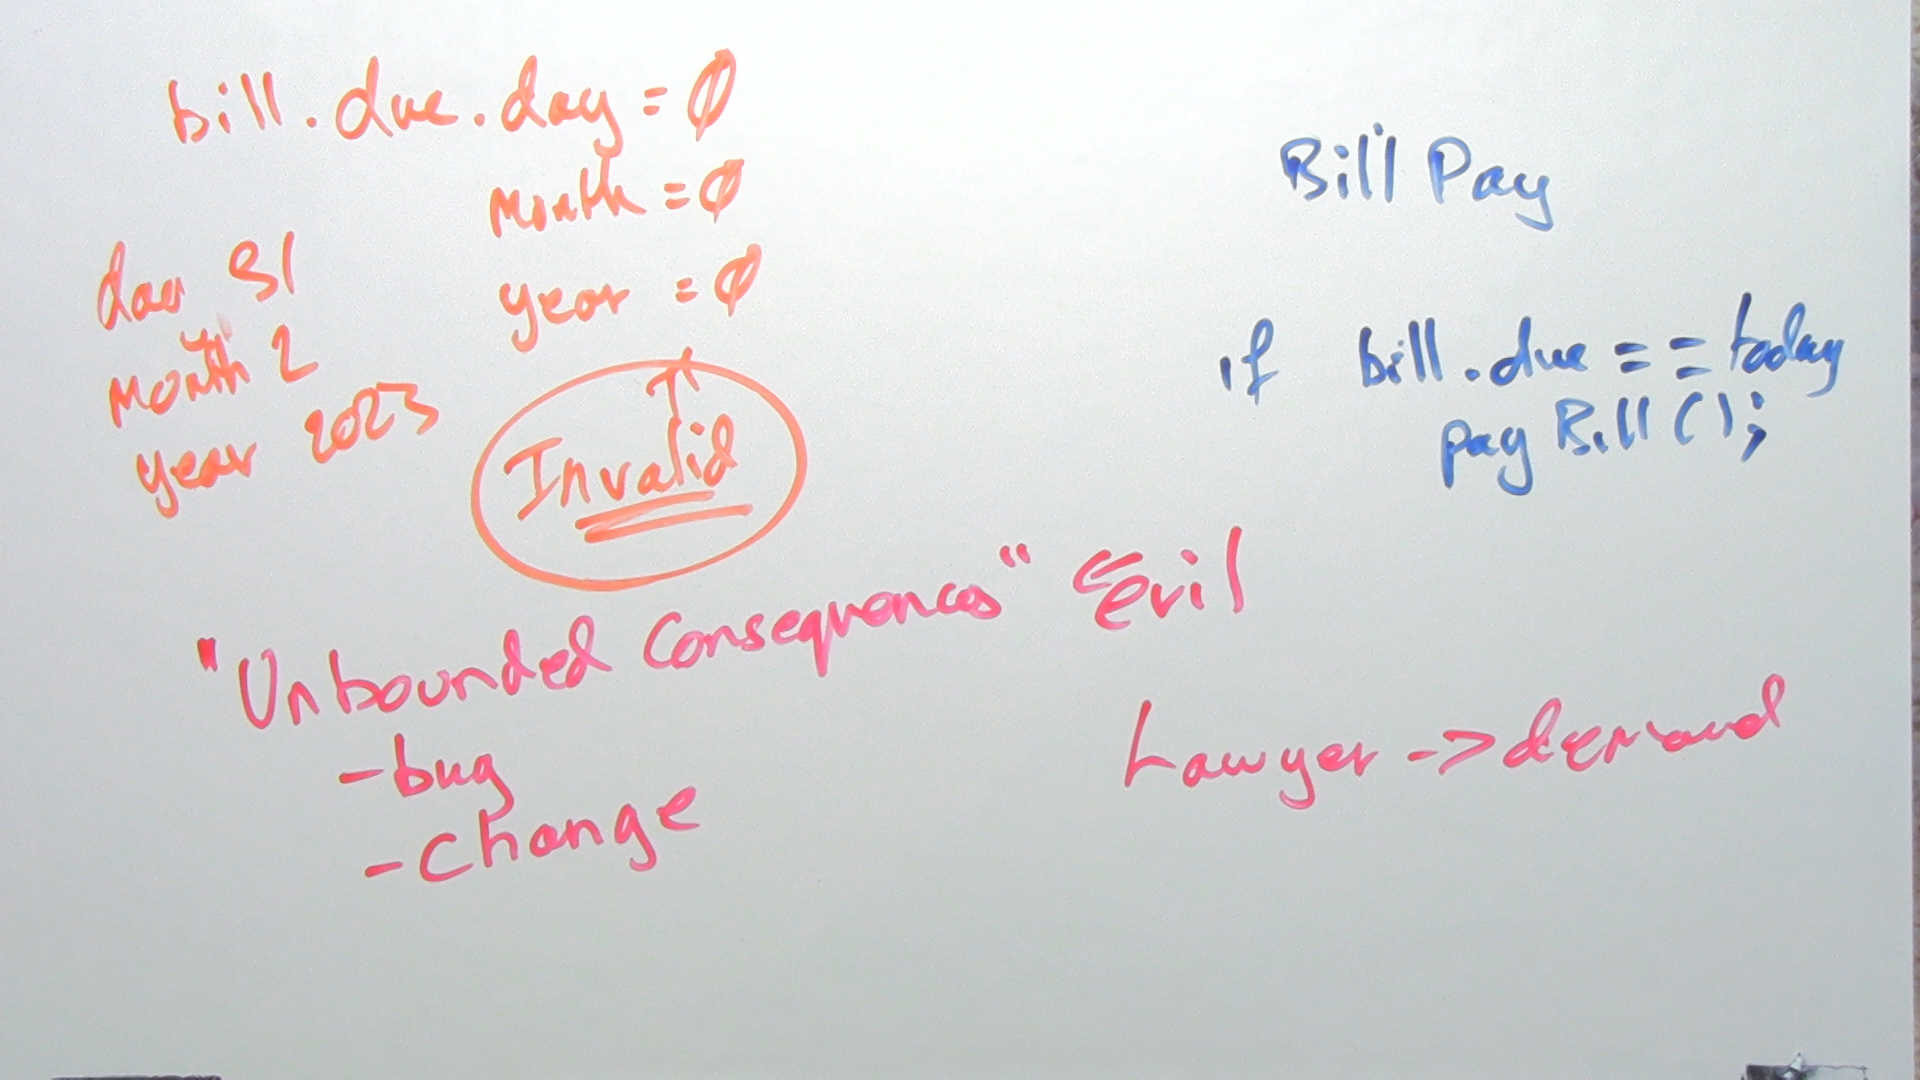 bill.due.day = 0
month = 0
year = 0
day 31
month 2
year 2023
Invalid
Bill Pay
if bill.due == today
payBill();
"Unbounded Consequences" ⇐ evil
-bug
-change
Lawyer -> demand